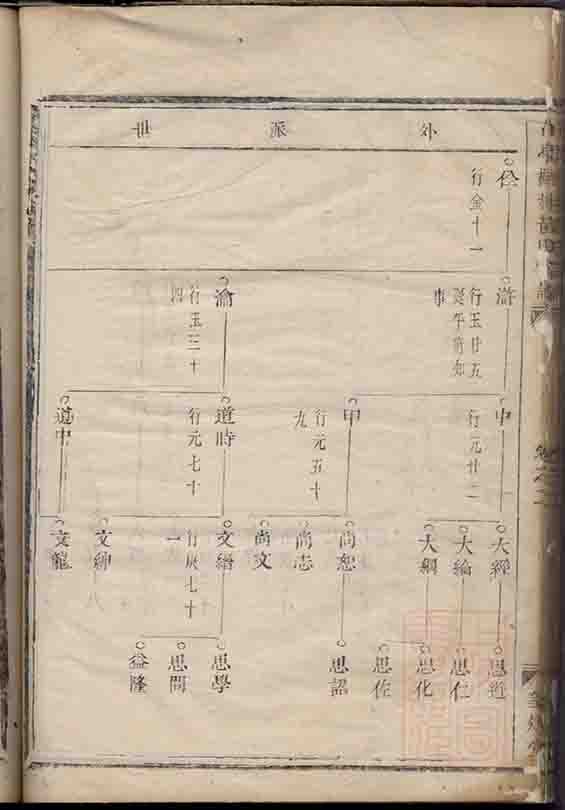 外派世
佺
行金十一
滸
行玉廿五
葵午前知
事
淪
行玉三十
四
中
行元廿二
甲
行元五十
九
道時
行元七十
道中
大經
大綸
大綱
尚恕
尚志
尚文
文縉
行庚七十
一
文紳
文龍
思近
思仁
思化
思佐
思詔
思學
思問
益隆